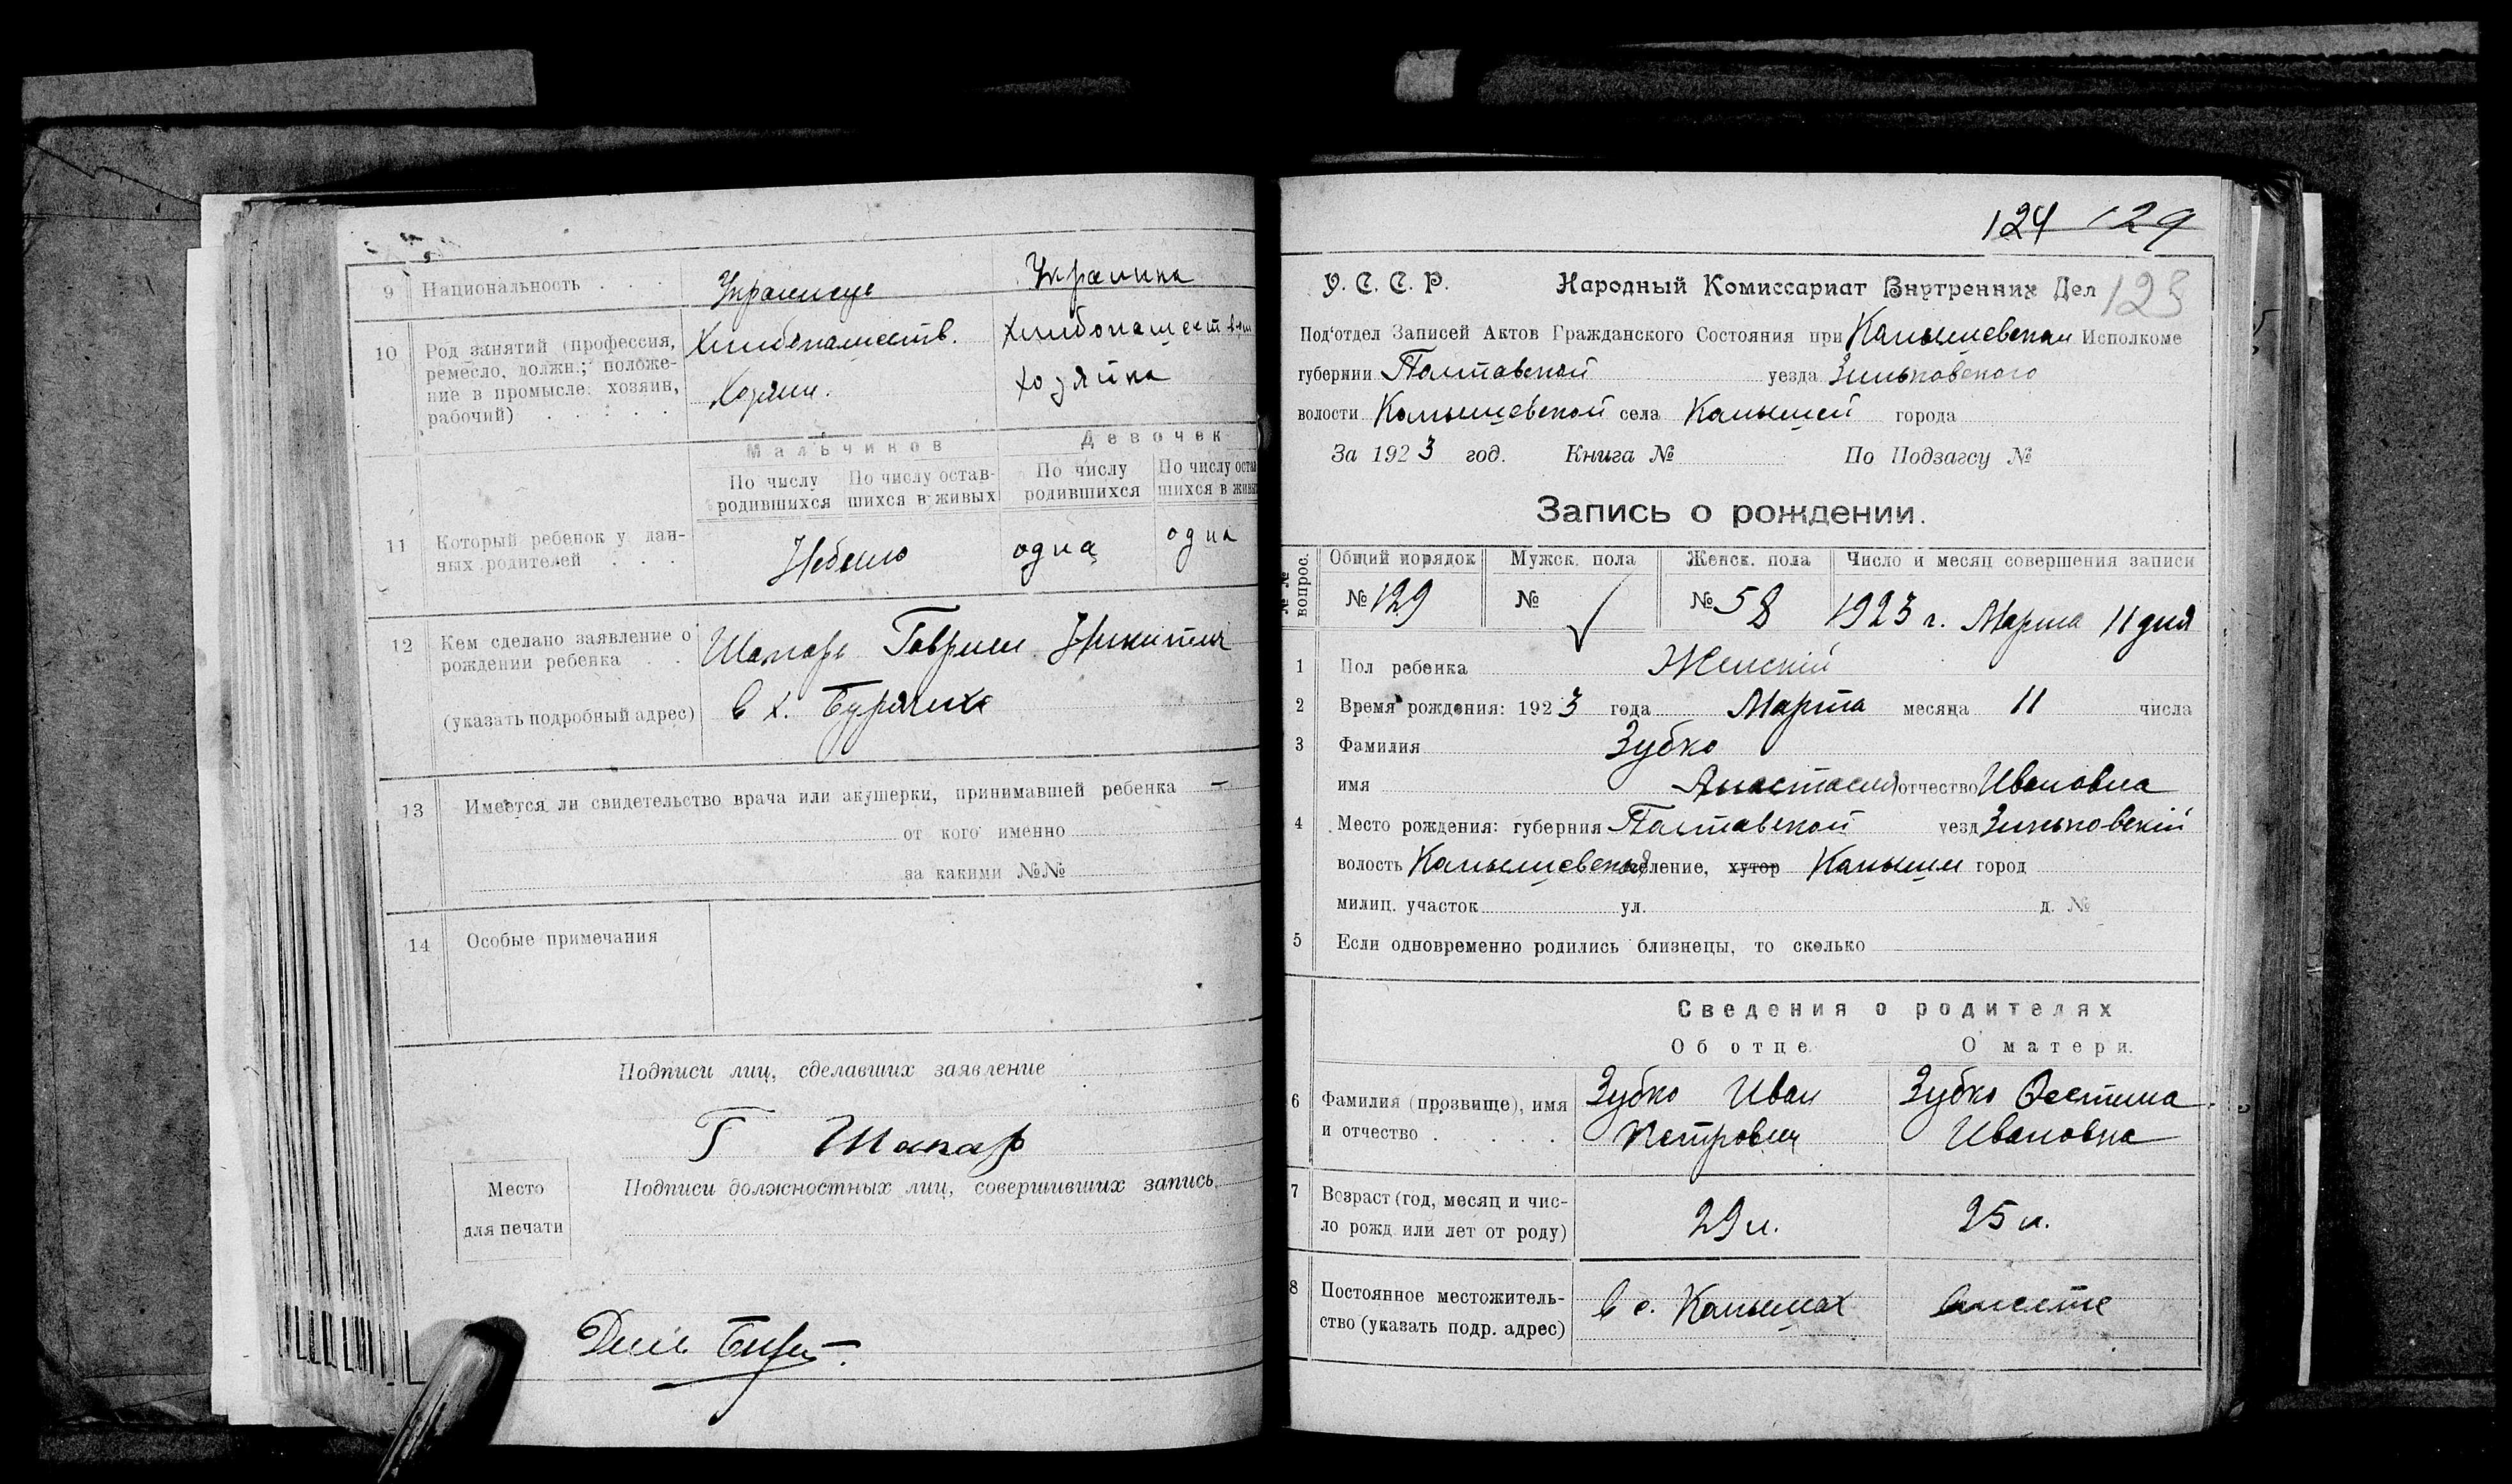 9 Национальность . . . Украинец Украинка
10 Род занятий (профессия, Хлебопашеств. Хлебопашеств
ремесло, должн.; положе-
ние в промысле: хозяин, Хозяин. хозяйка
рабочий) . . . . .
Мальчиков Девочек
По числу По числу остав- По числу По числу остав
родившихся шихся в живых родившихся шихся в живых
11 Который ребенок у дан- Небыло одна одна
ных родителей . . .
12 Кем сделано заявление о Шапарь Гавриил Никитич
рождении ребенка . .
(указать подробный адрес) в х.
13 Имеется ли свидетельство врача или акушерки, принимавшей ребенка —
от кого именно
за какими №№
14 Особые примечания
Подписи лиц, сделавших заявление
Г Шапар
Место Подписи должностных лиц, совершивших запись
для печати
124 129
У. С. С. Р. Народный Комиссариат Внутренних Дел 123
Под'отдел Записей Актов Гражданского Состояния при Камышевском Исполкоме
губернии Полтавской уезда Зиньковского
волости Камышевской села Камышей города
За 1923 год. Книга № По Подзагсу №
Запись о рождении.
№№ вопрос. Общий порядок Мужск. пола Женск. пола Число и месяц совершения записи
№ 129 № № 58 1923 г. Марта 11 дня
1 Пол ребенка Женскій
2 Время рождения: 1923 года Марта месяца 11 числа
3 Фамилия Зубко
имя Анастасия отчество Ивановна
4 Место рождения: губерния Полтавской уезд Зиньковскій
волость Камышевская селение, хутор Камыши город
милиц. участок ул. д. №
5 Если одновременно родились близнецы, то сколько
Сведения о родителях
Об отце. О матери.
6 Фамилия (прозвище), имя Зубко Иван Зубко Иустина
и отчество . . . . . Петрович Ивановна
7 Возраст (год, месяц и чис- 29 л. 25 л.
ло рожд. или лет от роду)
8 Постоянное местожитель- в с. Камышах вместе
ство (указать подр. адрес)